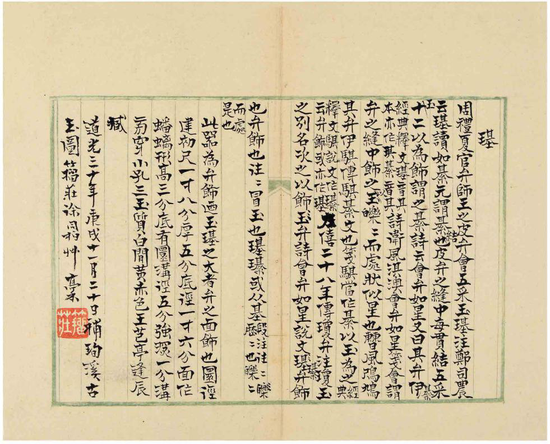 璂
周禮夏官弁師王之皮弁會五采玉璂注鄭司農
云璂讀如綦元謂綦結也皮弁之縫中每貫結五采
玉十二以為飾謂之綦詩云會弁如星又曰其弁伊綦
經典釋文璂音其本亦作琪綦音其詩衛風淇澳會弁如星箋會謂
弁之縫中飾之玉皪〻而處狀似星也曹風鳲鳩
其弁伊騏傳騏綦文也箋騏當作綦以玉為之經典
釋文騏說文作璂云弁飾或亦作琪左僖二十八年傳瓊弁注瓊玉
之別名次之以飾玉弁詩會弁如星說文璂弁飾
也弁飾也注〻冒玉也璂璂或从基段注注〻皪〻
而處是也
此器為弁飾玉璂之大者弁之面飾也圜徑
建初尺一寸八分厚五分底徑一寸六分面作
蟠螭形高三分底有圜溝徑五分強深一分溝
旁穿小孔三玉質白間黃赤色王茝亭逢辰
臧
道光三十年庚戌十一月二十日補珣溪古
玉圖籀莊徐同柏艸藁
籀莊